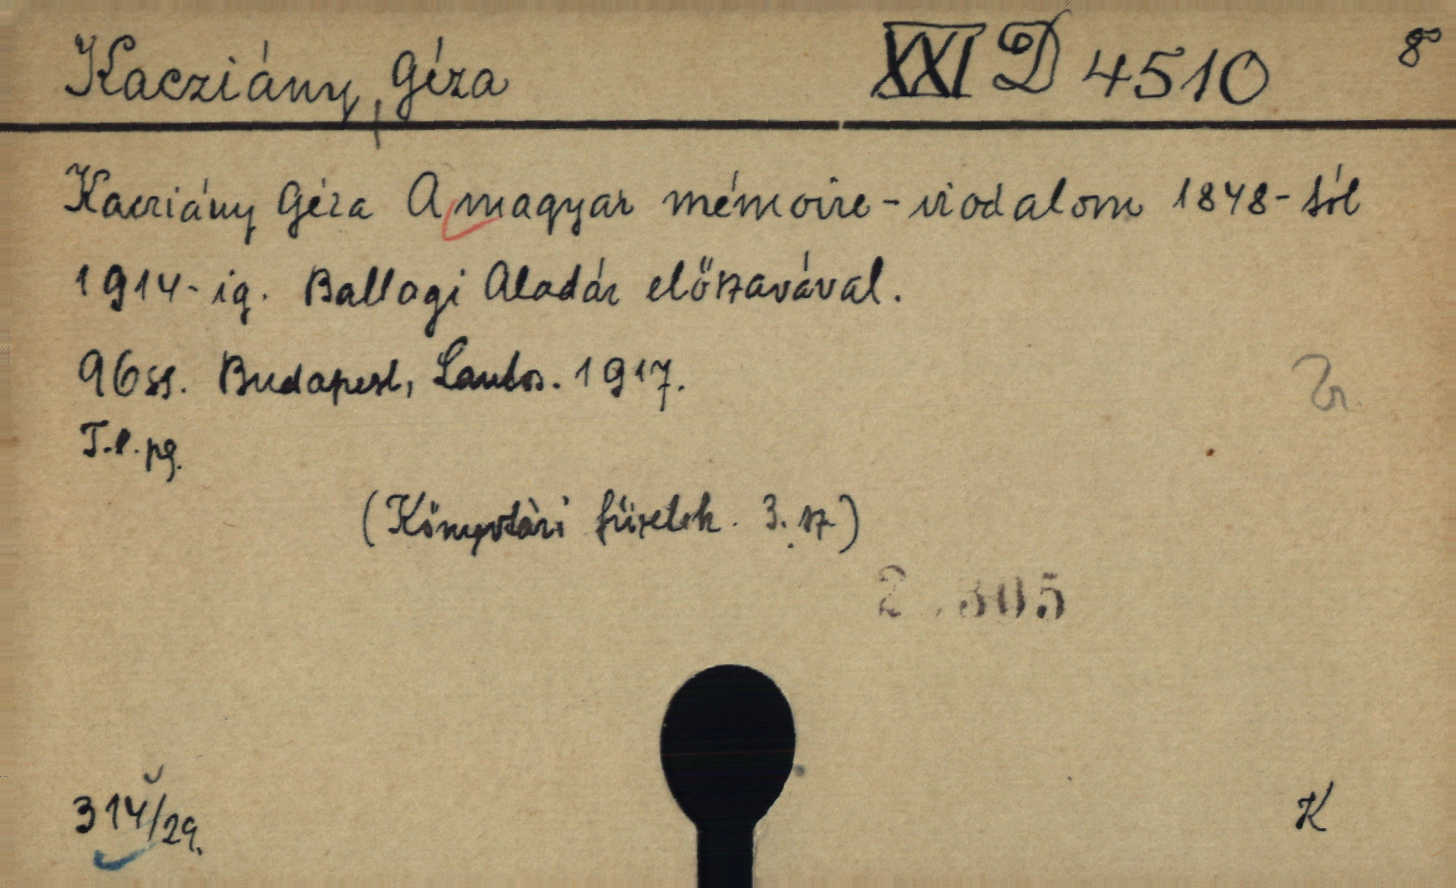 Kacziány, Géza XXI D 4510 8°
Kacziány Géza A magyar mémoire-irodalom 1848-tól
1914-ig. Ballagi Aladár előszavával.
96 ss. Budapest, Lantos. 1917.
T. l. pg.
(Könyvtári füzetek. 3. sz)
2.305
314/29.
K